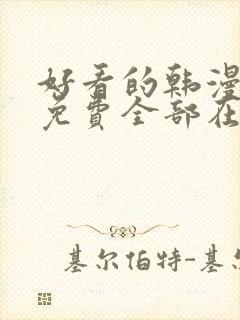 好看的韩漫
免費全部在
基尔伯特-基尔